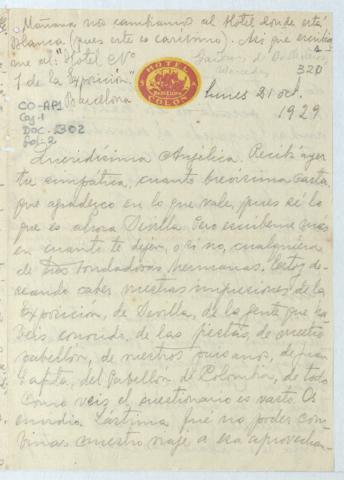 Mañana nos cambiamos al Hotel donde está
Blanca (pues este es carísimo). Así que escribid
me al "Hotel Nº
1 de la Exposición".
Barcelona
320
HOTEL
COLON
Lunes 21 oct.
1929
CO-AP1
Caj-1
DOC-302
Fol-2
Queridísima Anjélica. Recibí ayer
tu simpática, cuanto brevísima carta
que agradezco en lo que vale, pues sé lo
que es ahora Sevilla. Pero escríbeme más
en cuanto te dejen, o si no, cualquiera
de tus bondadosas hermanas. Estoy de-
seando saber vuestras impresiones de la
Exposición, de Sevilla, de la gente que ha
béis conocido, de las fiestas, de nuestro
pabellón, de nuestros paisanos, de
del Pabellón de Colombia, de todo
Como veis el cuestionario es vasto. Os
envidio. Lástima fué no poder com-
binar nuestro viaje a esa aprovechan-